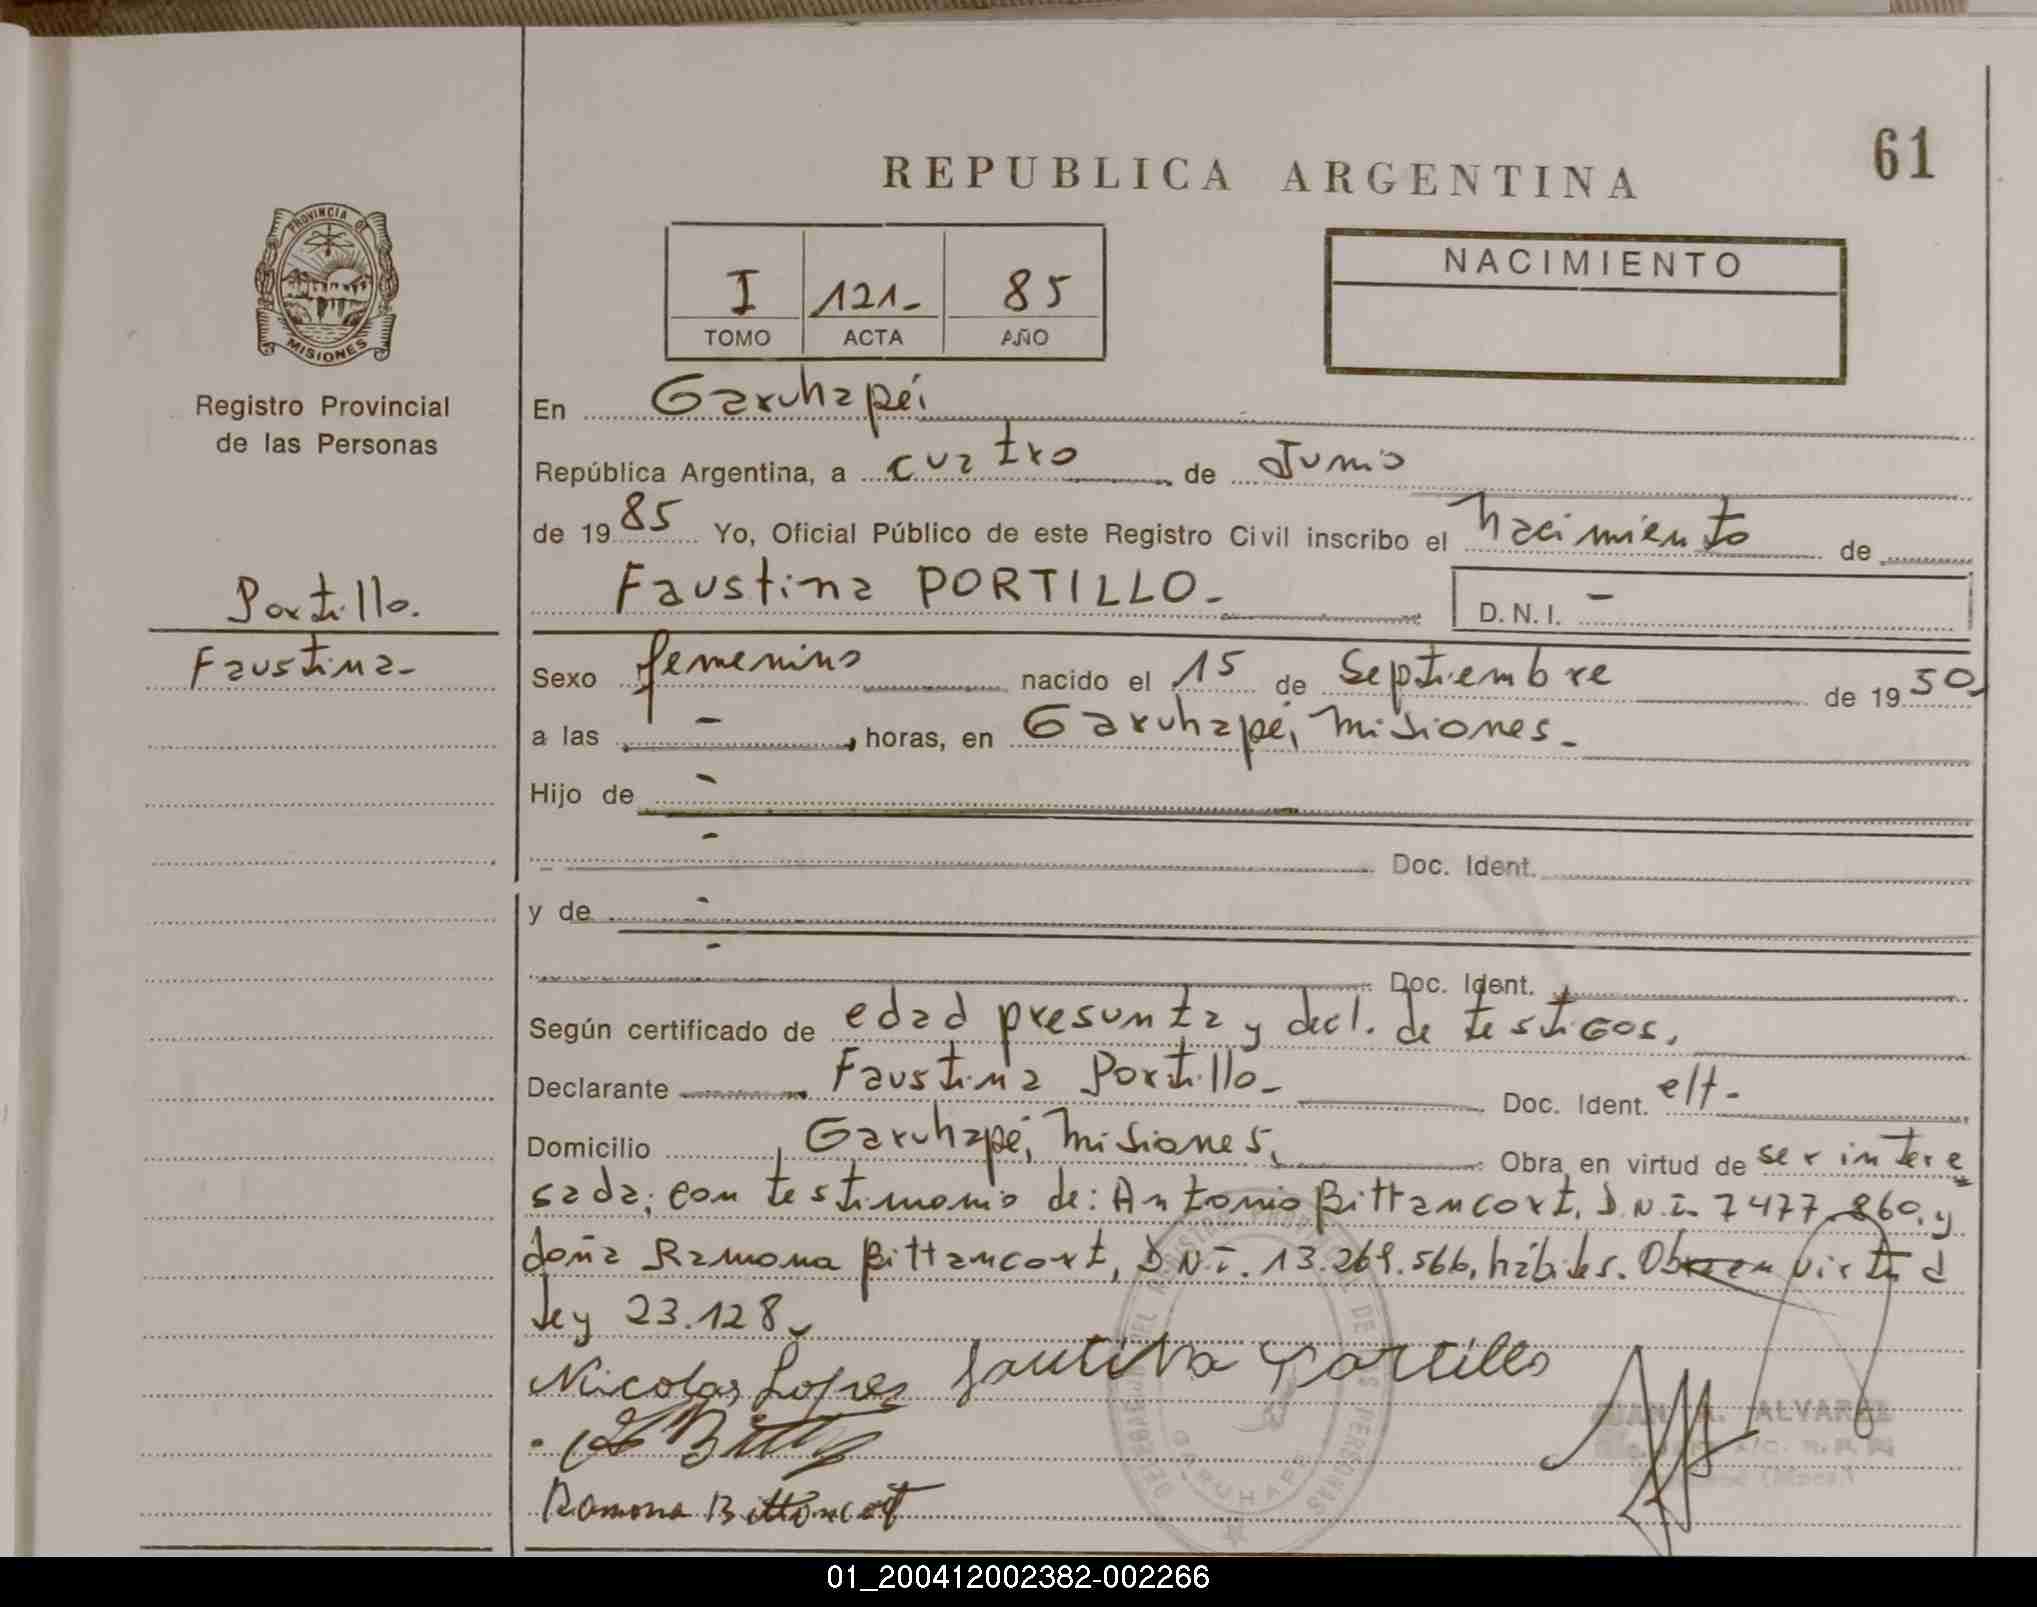 61
REPUBLICA ARGENTINA
PROVINCIA DE
MISIONES
Registro Provincial
de las Personas
I 121- 85
TOMO ACTA AÑO
NACIMIENTO
En Garuhapé,
República Argentina, a cuatro de Junio
de 1985 Yo, Oficial Público de este Registro Civil inscribo el nacimiento de
Faustina PORTILLO- D.N.I. -
Portillo.
Faustina-
Sexo femenino nacido el 15 de Septiembre de 1950,
a las - , horas, en Garuhapé, Misiones-
Hijo de -
- Doc. Ident.
y de -
- Doc. Ident.
Según certificado de edad presunta y decl. de testigos,
Declarante Faustina Portillo- Doc. Ident.
Domicilio Garuhapé, Misiones, Obra en virtud de ser intere
sada; con testimonio de: Antonio Bittancort, D.N.I. 7477.860, y
doña Ramona Bittancort, D.N.I. 13.269.566, hábiles. Obra en virtud
ley 23.128
Nicolas Lopes Fautina Portillo
Ramona Bittancort
JUAN A. ALVAREZ
DEL REGISTRO PROVINCIAL DE LAS PERSONAS
GARUHAPE
01_200412002382-002266